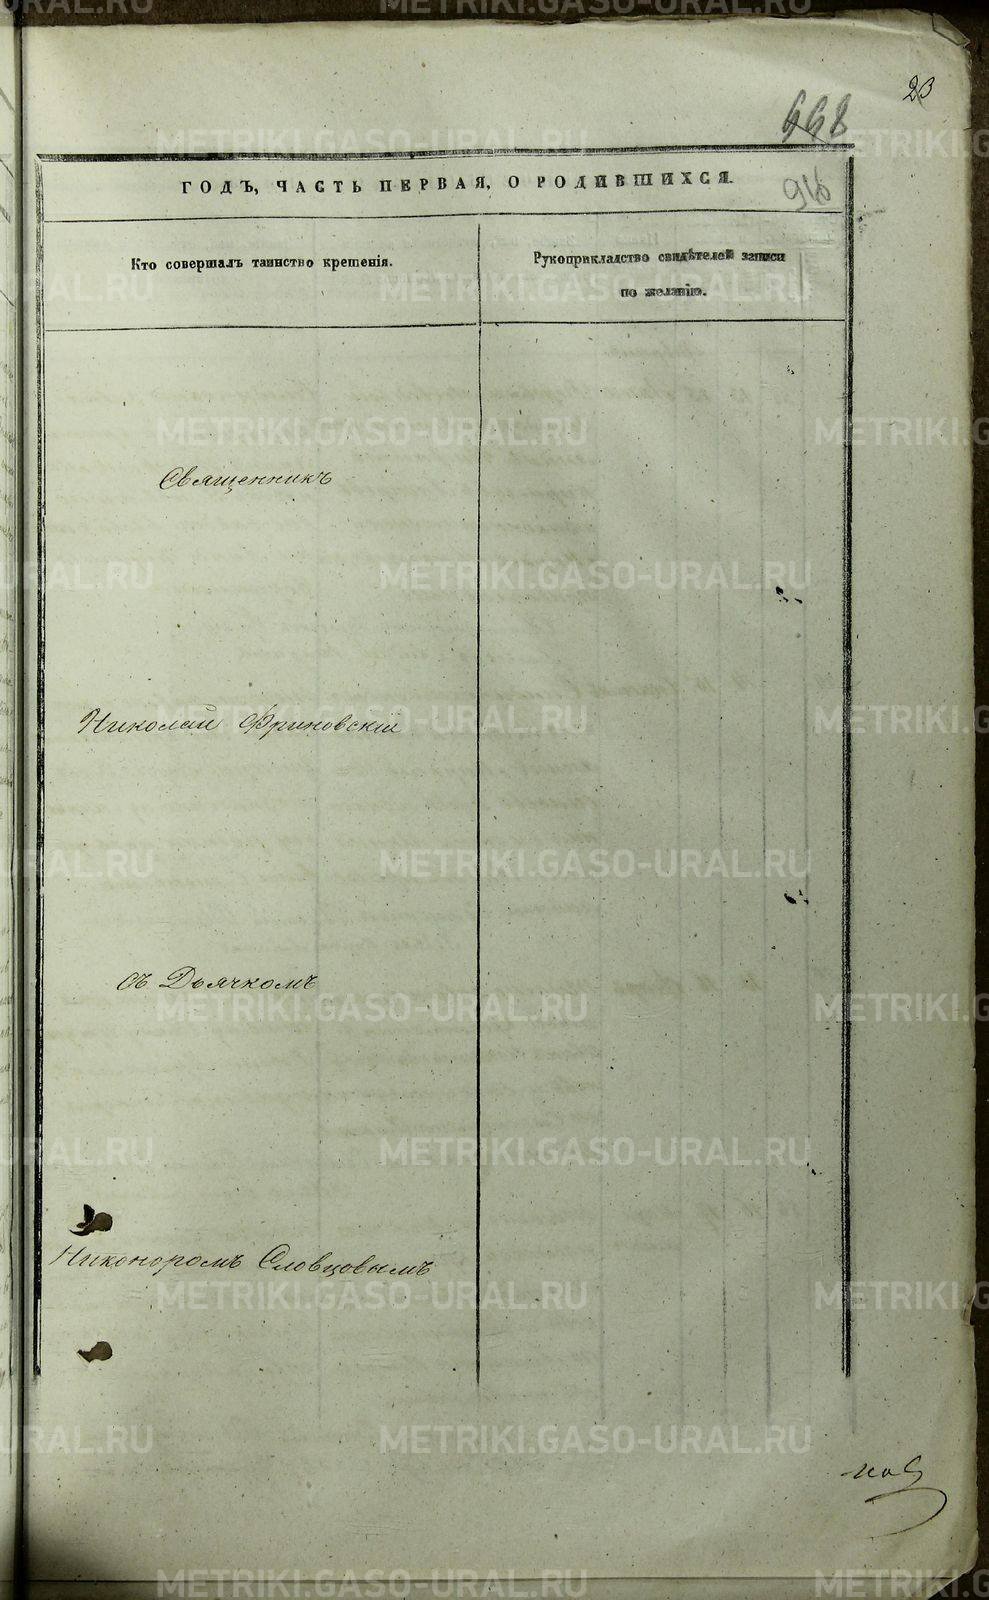 23
668
916
ГОДЪ, ЧАСТЬ ПЕРВАЯ, О РОДИВШИХСЯ.
Кто совершалъ таинство крещенія.
Рукоприкладство свидѣтелей записи
по желанію.
Священникъ
Николай Фриновскій
съ Дьячкомъ
Никоноромъ Словцовымъ
METRIKI.GASO-URAL.RU